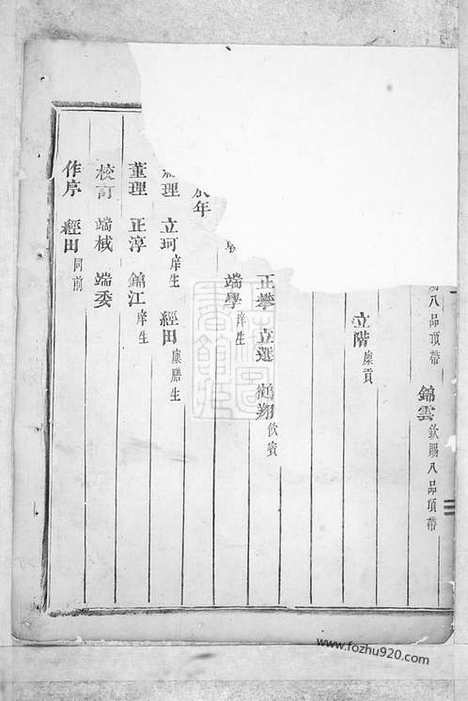 八品頂帶 錦雲欽賜八品頂帶
立階廩貢
正攀 立選 鶴翔飲賓
端學庠生
年
理 立珂庠生 經田廩膳生
董理 正淳 錦江庠生
校訂 端棫 端委
作序 經田同前
www.fozhu920.com